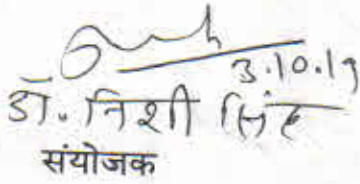 3.10.19
डॉ. निशी सिंह
संयोजक